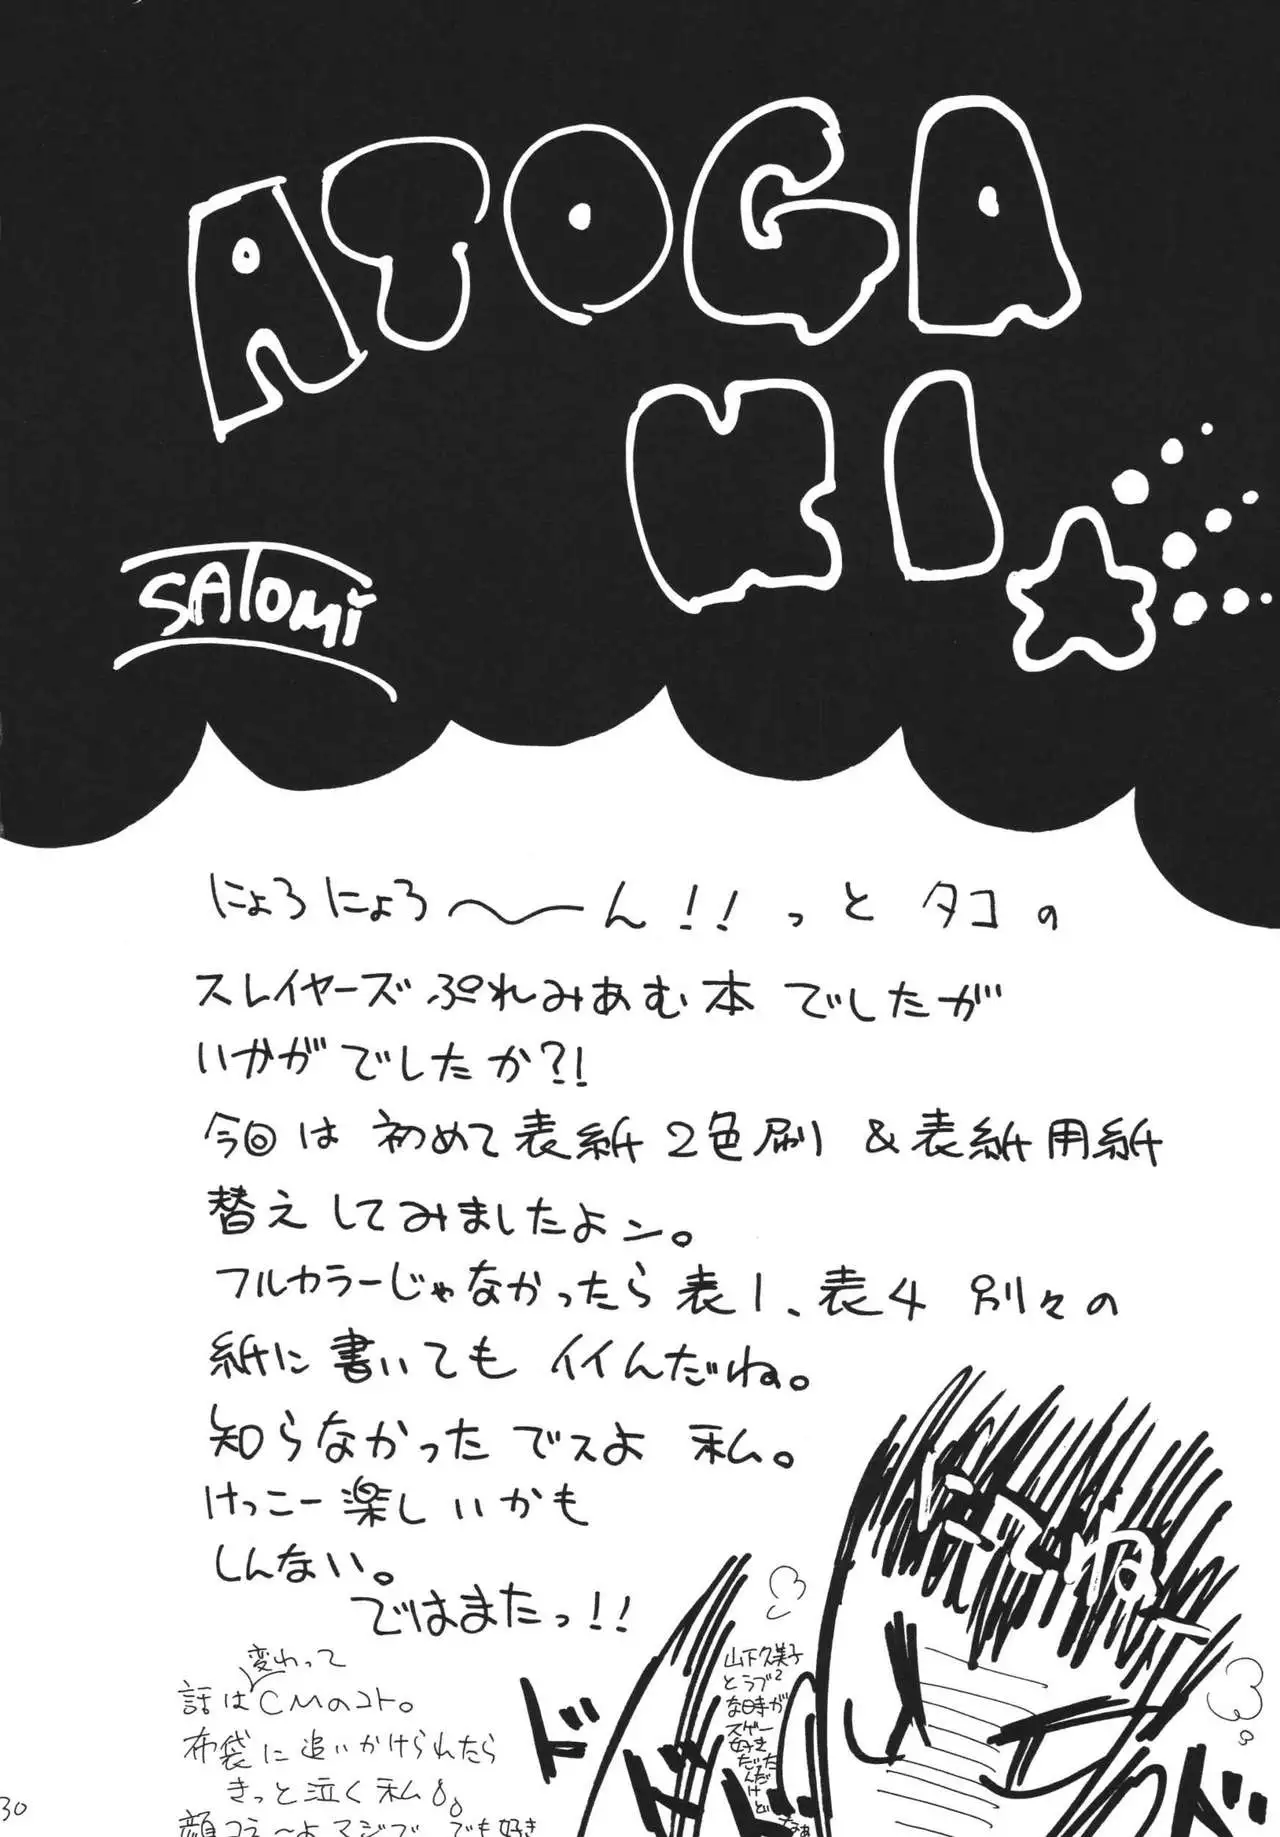 ATOGA
KI
SATOMI
にょろにょろ〜ーん!!っとタコの
スレイヤーズぷれみあむ本でしたが
いかがでしたか?!
今回は初めて表紙2色刷&表紙用紙
替えしてみましたよン。
フルカラーじゃなかったら表1、表4別々の
紙に書いてもイイんだね。
知らなかったでスよ私。
けっこー楽しいかも
しんない。
ではまたっ!!
変わって
話はCMのコト。
布袋に追いかけられたら
きっと泣く私
顔コエ〜よマジで。でも好き
山下久美子
とラブ2
な時が
スゲー
好き
だった
んだけど
なぁ
にてねー
ドドド
ド
30